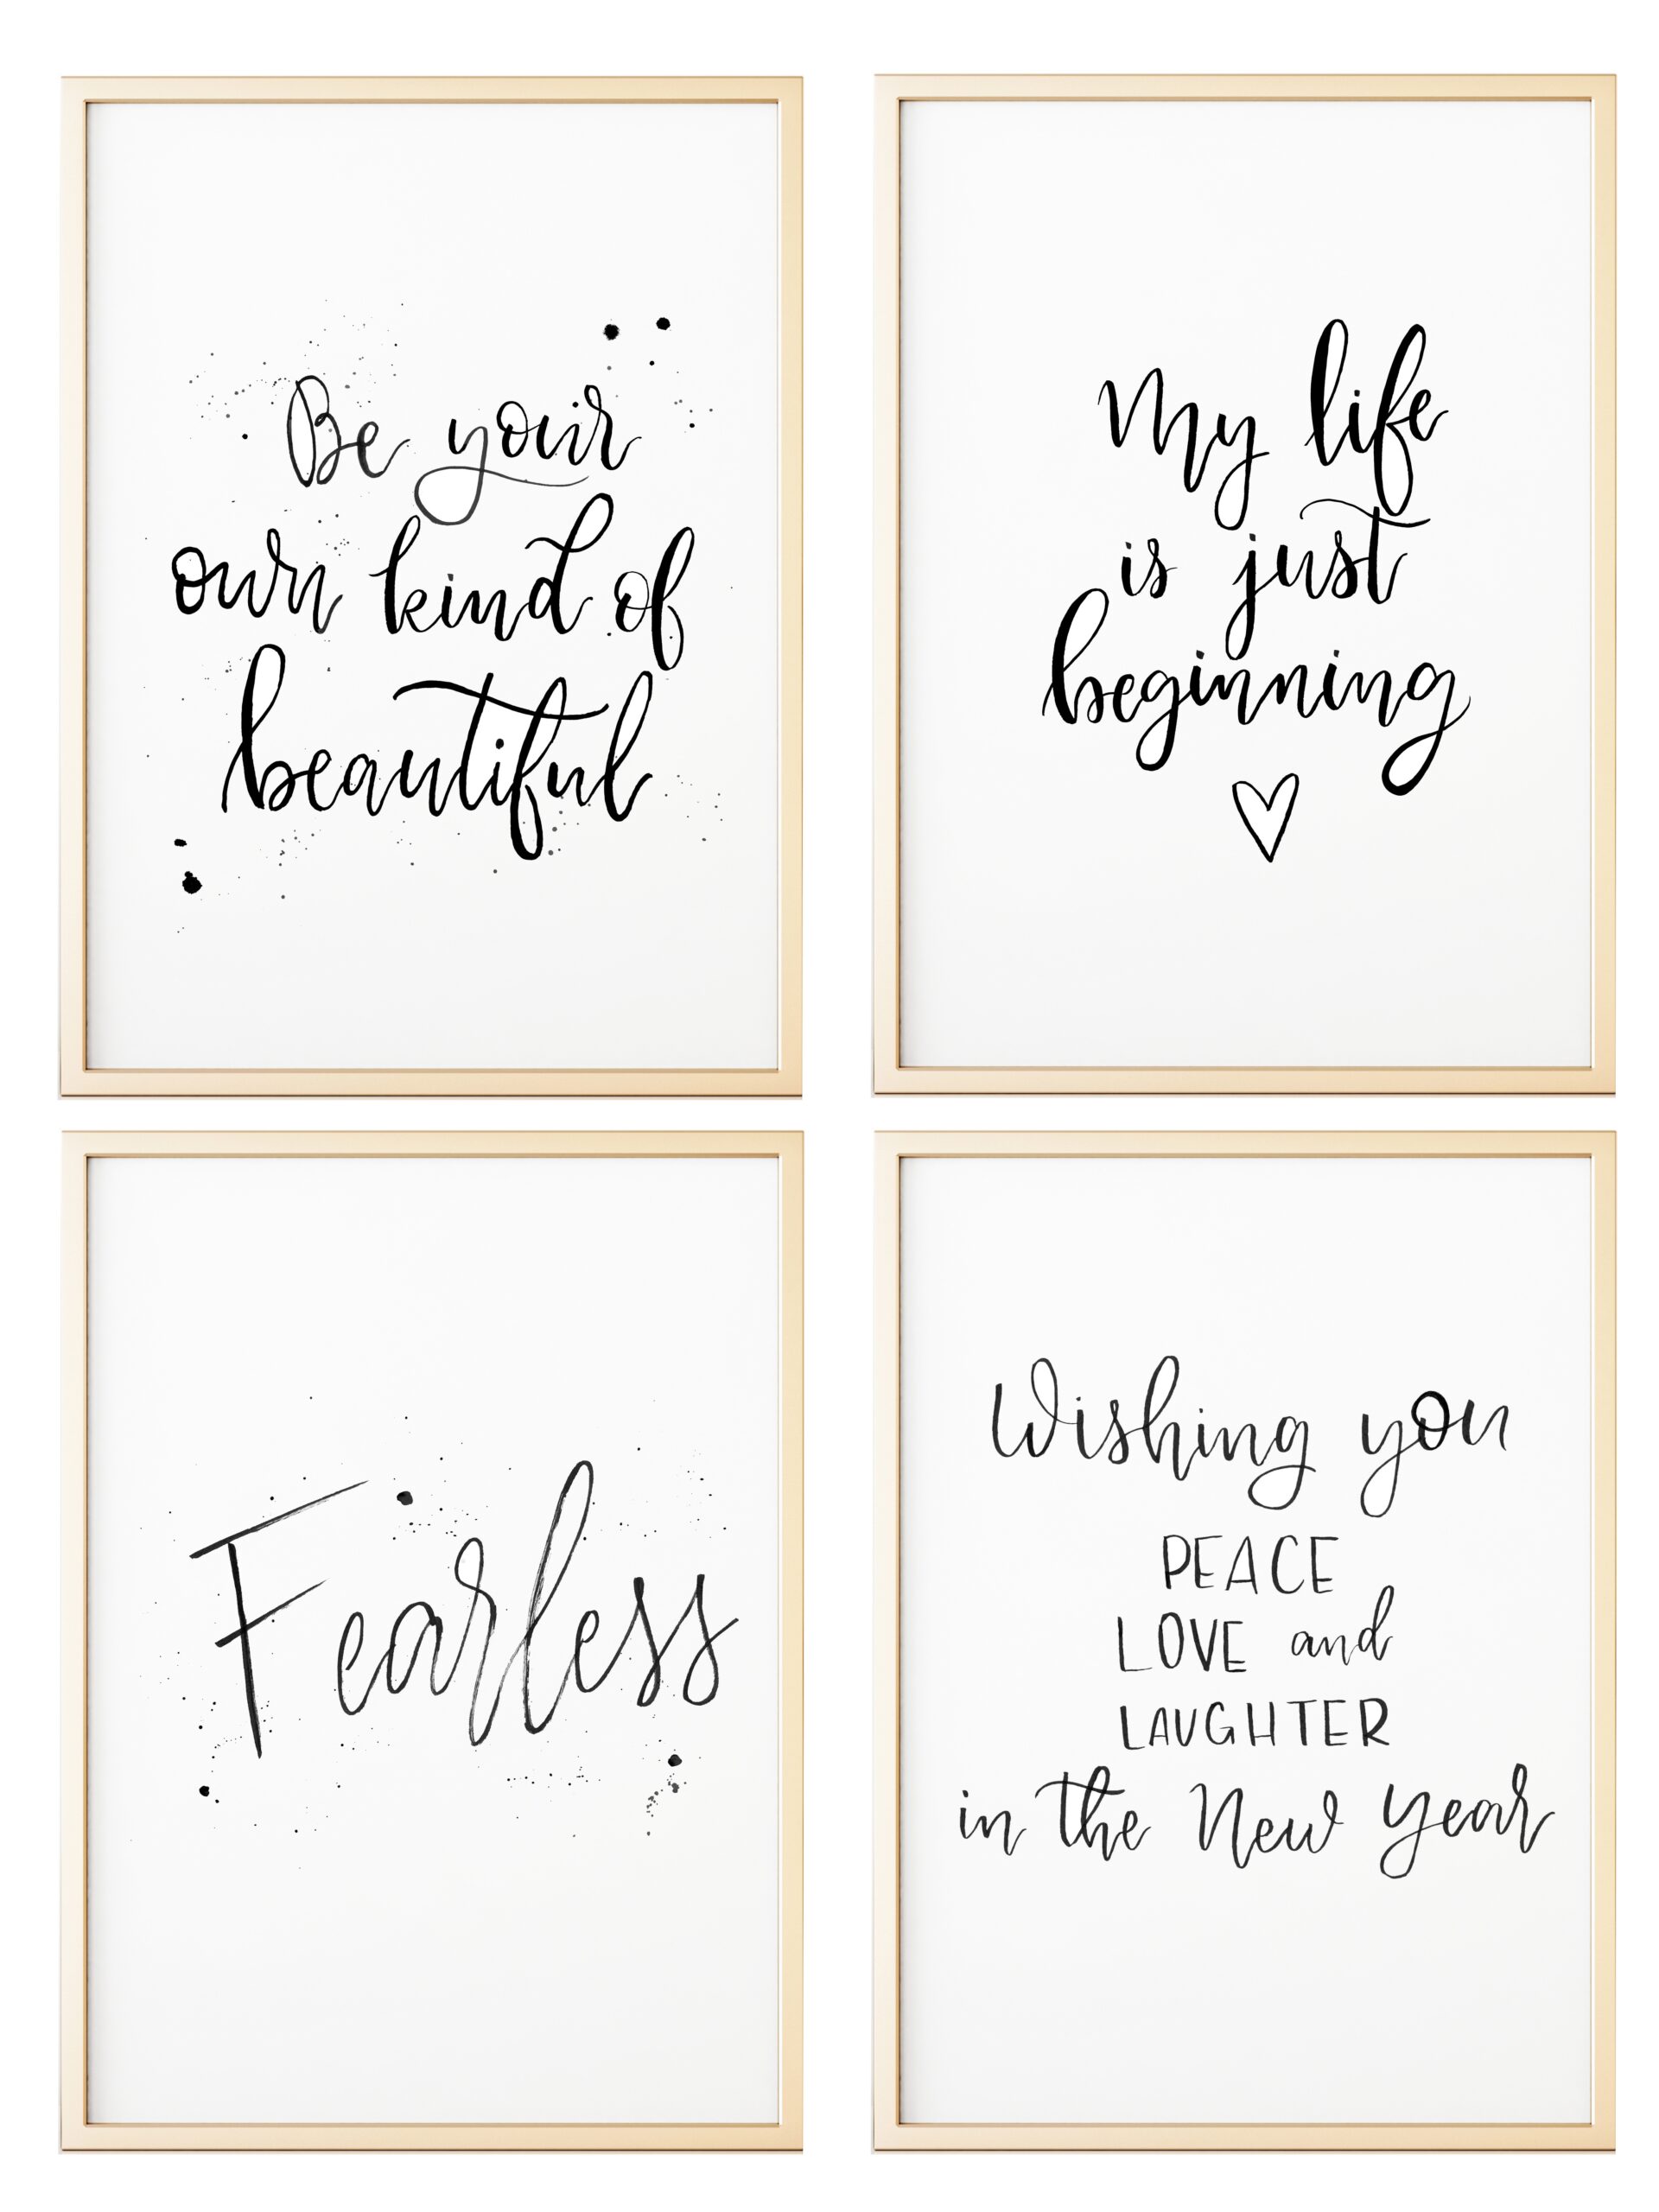 Be your
own kind of
beautiful
My life
is just
beginning
Fearless
Wishing you
PEACE
LOVE and
LAUGHTER
in the New Year